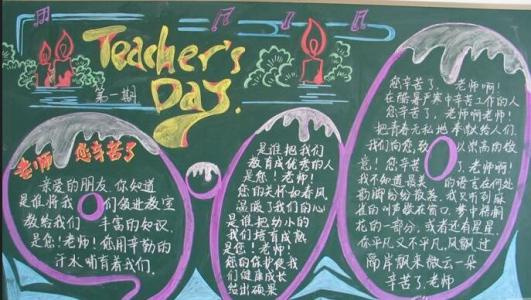 Teacher's
Day.
第一期
老师 您辛苦了
亲爱的朋友 你知道
是谁将我们领进教室
教给我们 丰富的知识.
是您!老师!您用辛勤的
汗水哺育着我们.
是谁把我们
教育成优秀的人
是您!老师!
您的关怀如春风
温暖了我们的心
是谁把幼小的
我们培育成熟
是您!老师!
您的
我们健康成长
结出硕果
您辛苦了,老师啊!
在酷暑严寒中辛苦工作的人
您辛苦了,老师啊老师!
把青春无私地奉献给人们.
我们向您致 以崇高的敬
意!您辛苦 了 老师啊!
我不知道最美 的语言在何处
我又听到麻
雀的叫声歇在窗口,梦中梧桐
花的一部分,或者还有星星,
在平凡又不平凡,风飘过
隔岸飘来微云一朵
辛苦了.老师